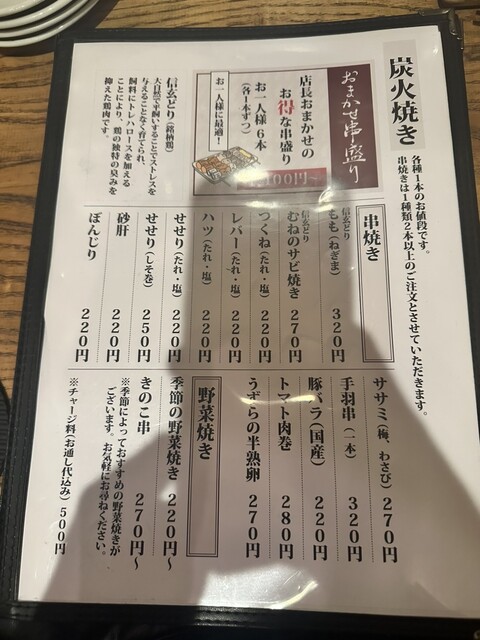 炭火焼き
各種1本のお値段です。
串焼きは1種類2本以上のご注文とさせていただきます。
おまかせ串盛り
店長おまかせの
お得な串盛り
お一人様6本
(各1本ずつ)
お一人様に最適!
信玄どり(銘柄鶏)
大自然で平飼いすることでストレスを
与えることなく育てられ、
飼料にトレハロースを加える
ことにより、鶏の独特の臭みを
抑えた鶏肉です。
串焼き
信玄どり
もも(ねぎま) 320円
信玄どり
むねのサビ焼き 270円
つくね(たれ・塩) 220円
レバー(たれ・塩) 220円
ハツ(たれ・塩) 220円
せせり(たれ・塩) 220円
せせり(しそ巻) 250円
砂肝 220円
ぼんじり 220円
ササミ(梅、わさび) 270円
手羽串(一本) 320円
豚バラ(国産) 220円
トマト肉巻 280円
うずらの半熟卵 270円
野菜焼き
季節の野菜焼き 220円~
きのこ串 270円~
※季節によっておすすめの野菜焼きが
ございます。お気軽にお尋ねください。
※チャージ料(お通し代込み)500円